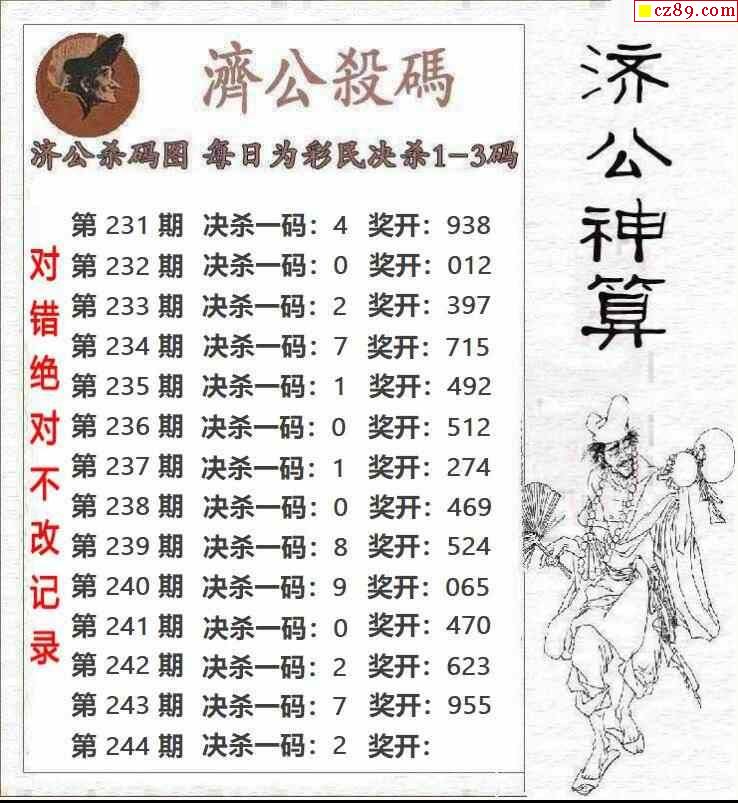 cz89.com
濟公殺碼
济公杀码图 每日为彩民决杀1-3码
第 231 期 决杀一码：4 奖开：938
第 232 期 决杀一码：0 奖开：012
第 233 期 决杀一码：2 奖开：397
第 234 期 决杀一码：7 奖开：715
第 235 期 决杀一码：1 奖开：492
第 236 期 决杀一码：0 奖开：512
第 237 期 决杀一码：1 奖开：274
第 238 期 决杀一码：0 奖开：469
第 239 期 决杀一码：8 奖开：524
第 240 期 决杀一码：9 奖开：065
第 241 期 决杀一码：0 奖开：470
第 242 期 决杀一码：2 奖开：623
第 243 期 决杀一码：7 奖开：955
第 244 期 决杀一码：2 奖开：
对错绝对不改记录
济公神算